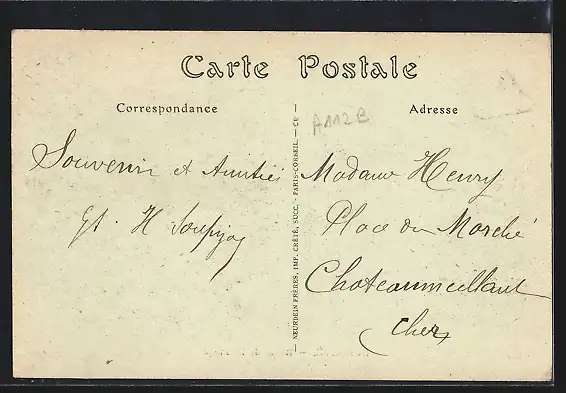 Carte Postale
Correspondance
Adresse
A112B
Souvenir et Amitiés
H
Madame Henry
Place du Marché
Chateaumeillant
Cher
NEURDEIN FRÈRES, IMP. CRÉTÉ, SUCC. - PARIS-CORBEIL. —